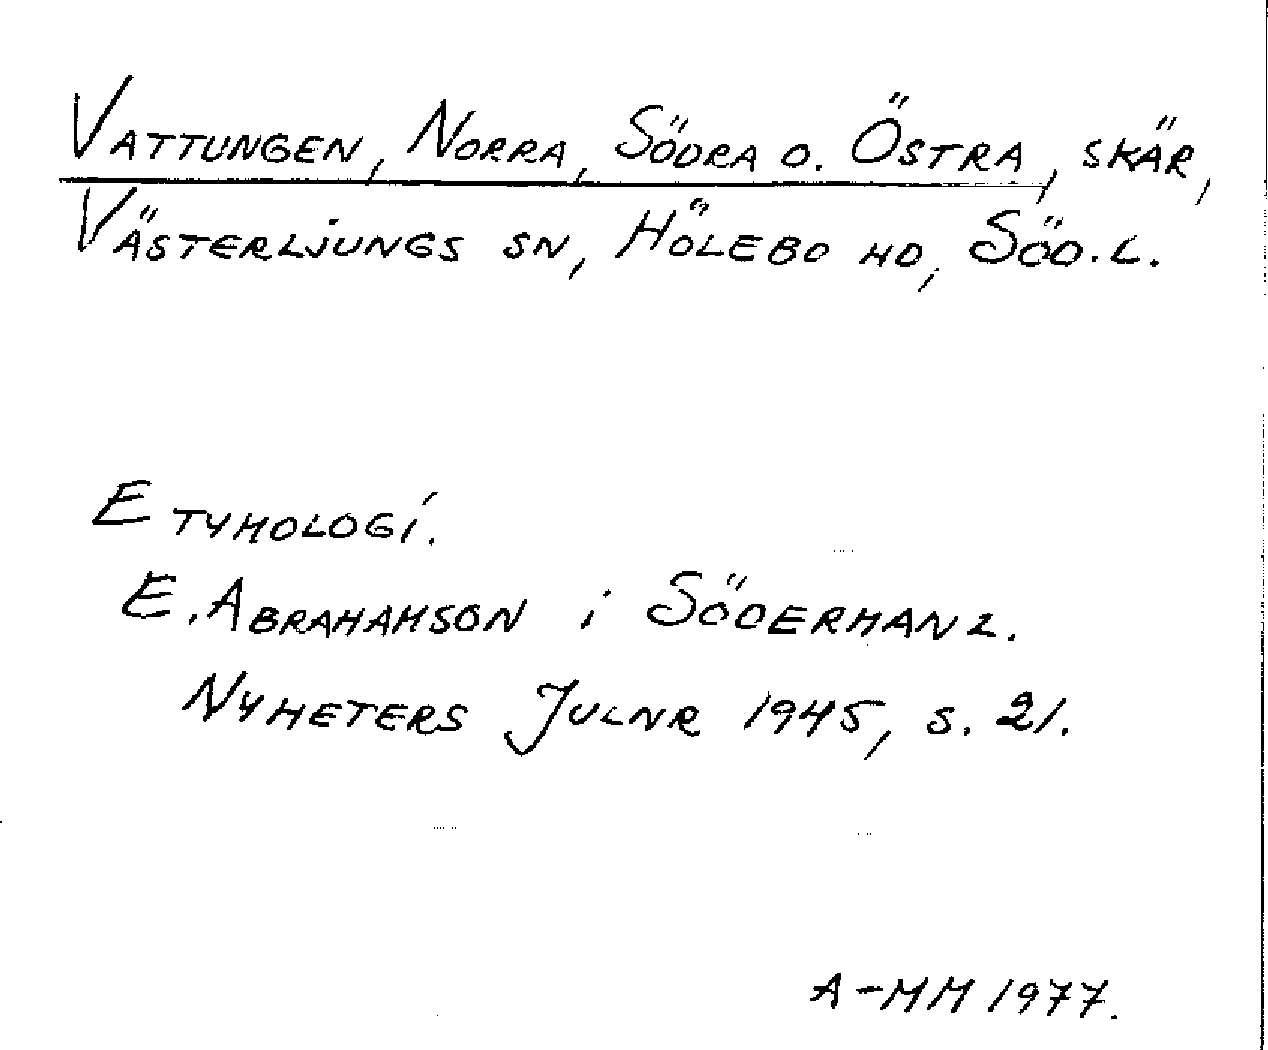 VATTUNGEN, NORRA, SÖDRA O. ÖSTRA, SKÄR,
VÄSTERLJUNGS SN, HÖLEBO HD, SÖD.L.
ETYMOLOGI.
E. ABRAHAMSON i SÖDERMANL.
NYHETERS JULNR 1945, S. 21.
A-MM 1977.